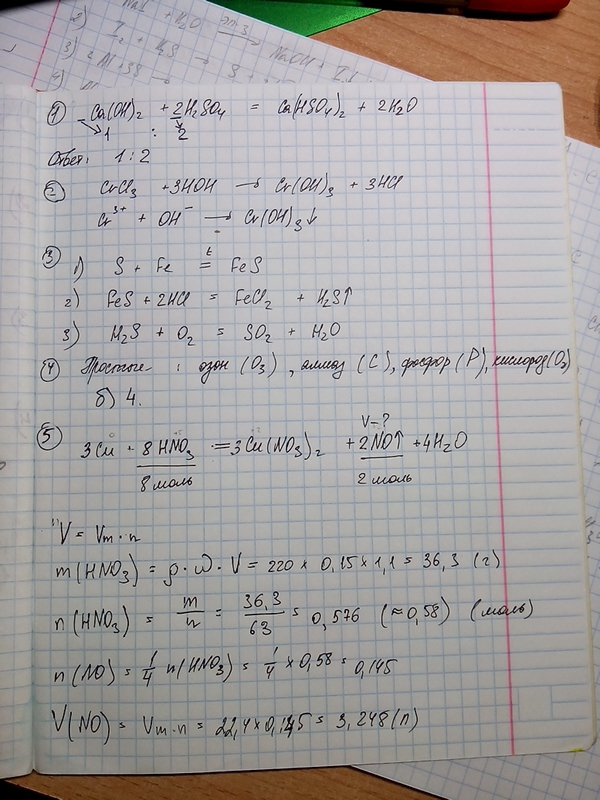 2) NaI + H₂O
3) I₂ + H₂S → S +
NaOH + I
4)
① Ca(OH)₂ + 2H₂SO₄ = Ca(HSO₄)₂ + 2H₂O
1 : 2
Ответ: 1 : 2
② CrCl₃ + 3HOH → Cr(OH)₃ + 3HCl
Cr³⁺ + OH⁻ → Cr(OH)₃↓
③ 1) S + Fe =ᵗ FeS
2) FeS + 2HCl = FeCl₂ + H₂S↑
3) H₂S + O₂ = SO₂ + H₂O
④ Простые : озон (O₃), алмаз (C), фосфор (P), кислород (O₂)
б) 4.
V-?
⑤ 3Cu + 8HNO₃ = 3Cu(NO₃)₂ + 2NO↑ + 4H₂O
8 моль 2 моль
V = Vm · n
m(HNO₃) = ρ · ω · V = 220 × 0,15 × 1,1 = 36,3 (г)
n(HNO₃) = m/n = 36,3/63 = 0,576 (≈0,58) (моль)
n(NO) = 1/4 n(HNO₃) = 1/4 × 0,58 = 0,145
V(NO) = Vm · n = 22,4 × 0,145 = 3,248 (л)